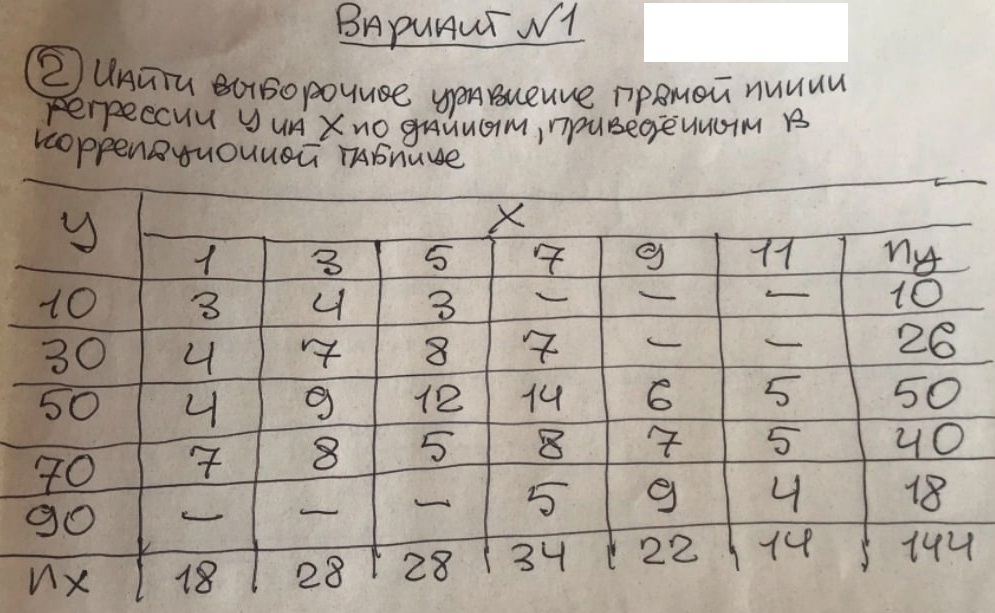 Вариант №1
② Найти выборочное уравнение прямой линии
регрессии У на Х по данным, приведённым в
корреляционной таблице
У Х
1 3 5 7 9 11 nу
10 3 4 3 – – – 10
30 4 7 8 7 – – 26
50 4 9 12 14 6 5 50
70 7 8 5 8 7 5 40
90 – – – 5 9 4 18
nх 18 28 28 34 22 14 144